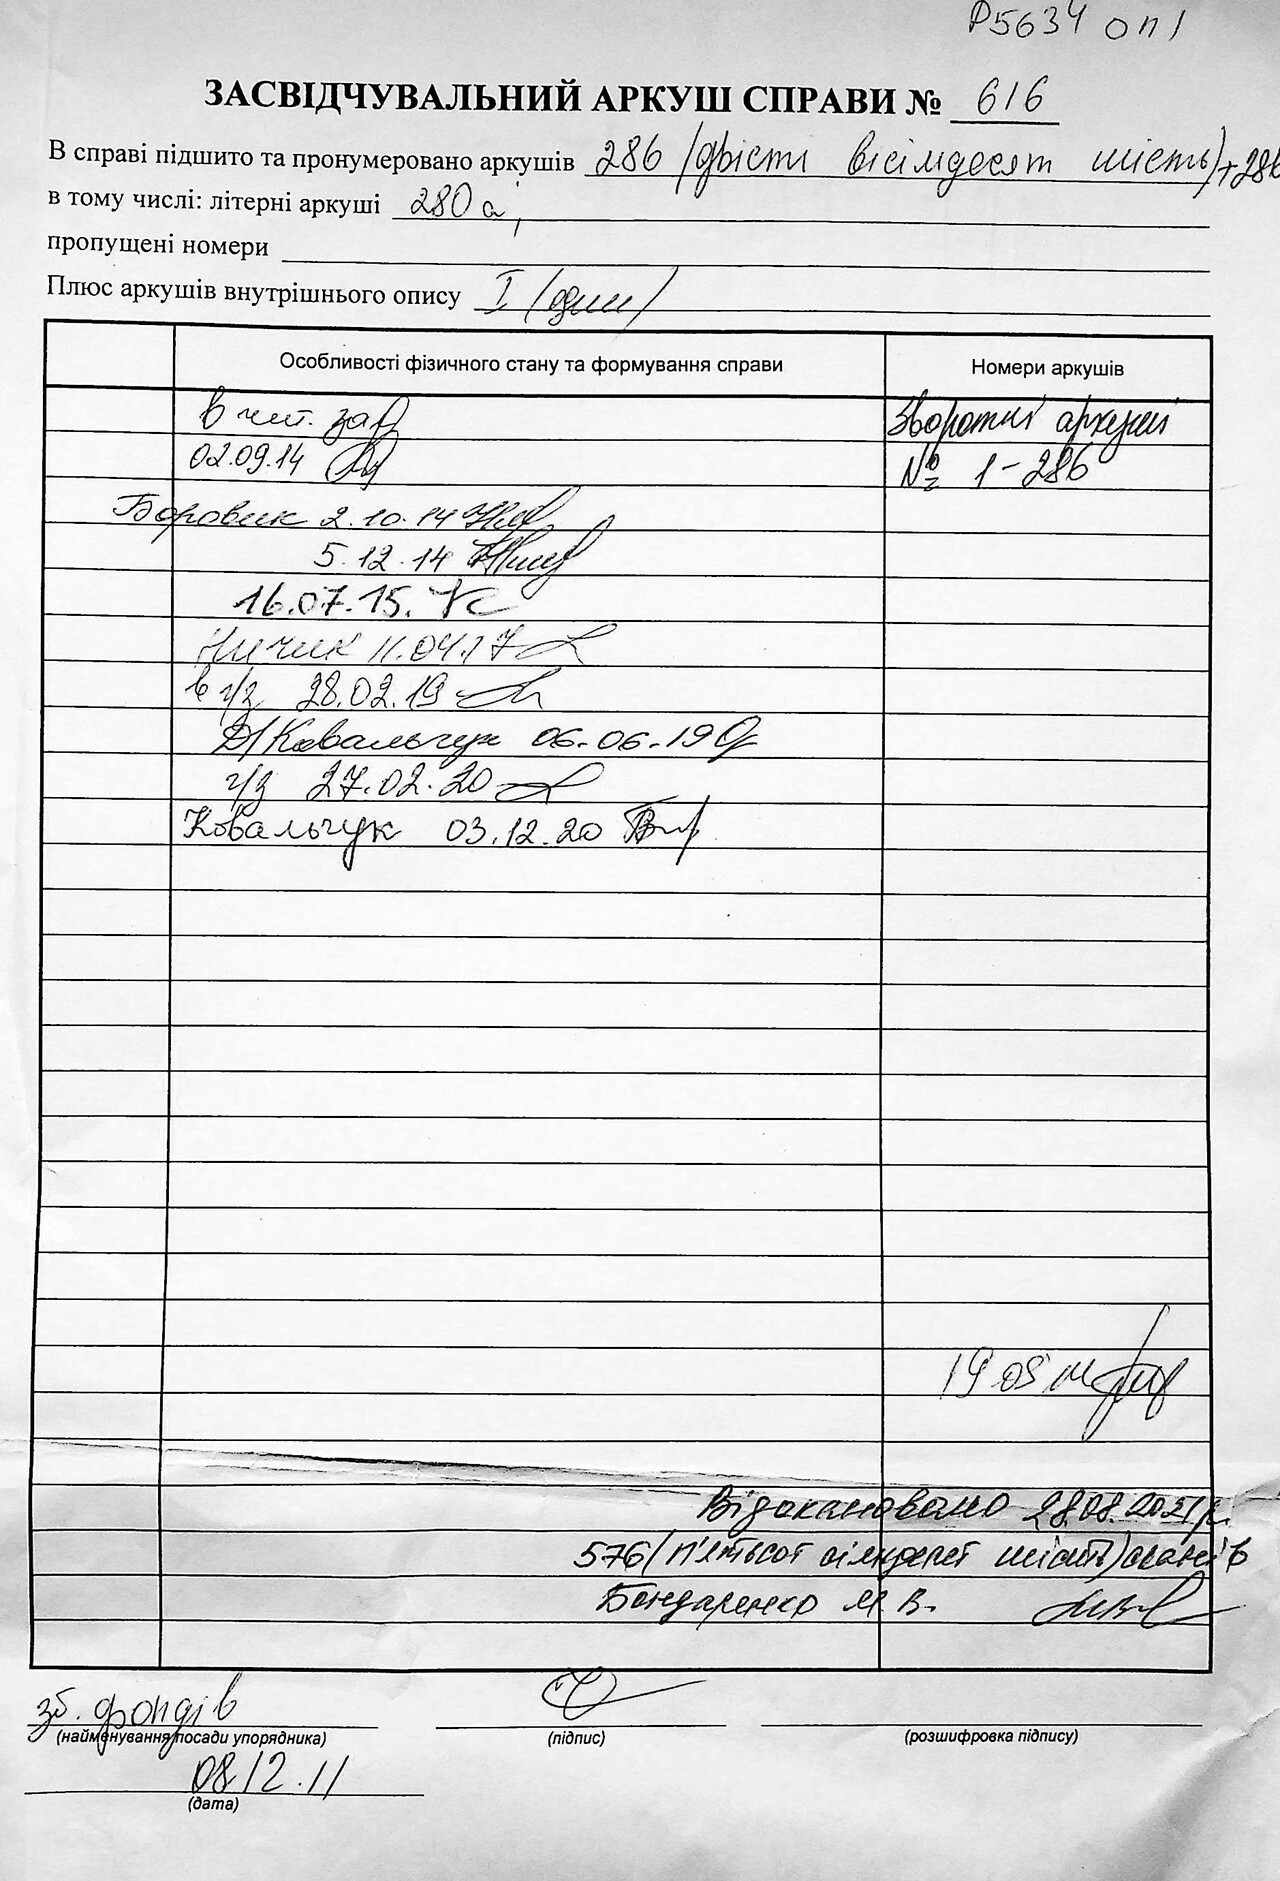 Р5634 оп 1
ЗАСВІДЧУВАЛЬНИЙ АРКУШ СПРАВИ № 616
В справі підшито та пронумеровано аркушів 286 (двісті вісімдесят шість) +286
в тому числі: літерні аркуші 280 а;
пропущені номери
Плюс аркушів внутрішнього опису I (один)
Особливості фізичного стану та формування справи Номери аркушів
в чит. зал Зворотні аркуші
02.09.14 № 1-286
Боровик 2.10.14
5.12.14
16.07.15.
Ничик 11.04.17
в ч/з 28.02.19
Д/Ковальчук 06.06.19
ч/з 27.02.20
Ковальчук 03.12.20
19.08
Відскановано 28.08.2021р.
576 (п'ятсот сімдесят шість) сканів
Бондаренко М.В.
зб. фондів
(найменування посади упорядника) (підпис) (розшифровка підпису)
08.12.11
(дата)